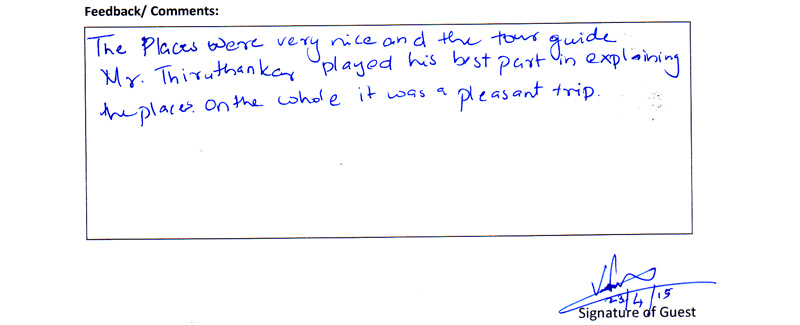 Feedback/ Comments:
The Places were very nice and the tour guide
Mr. Thiruthankar played his best part in explaining
the places. On the whole it was a pleasant trip.
23/4/15
Signature of Guest